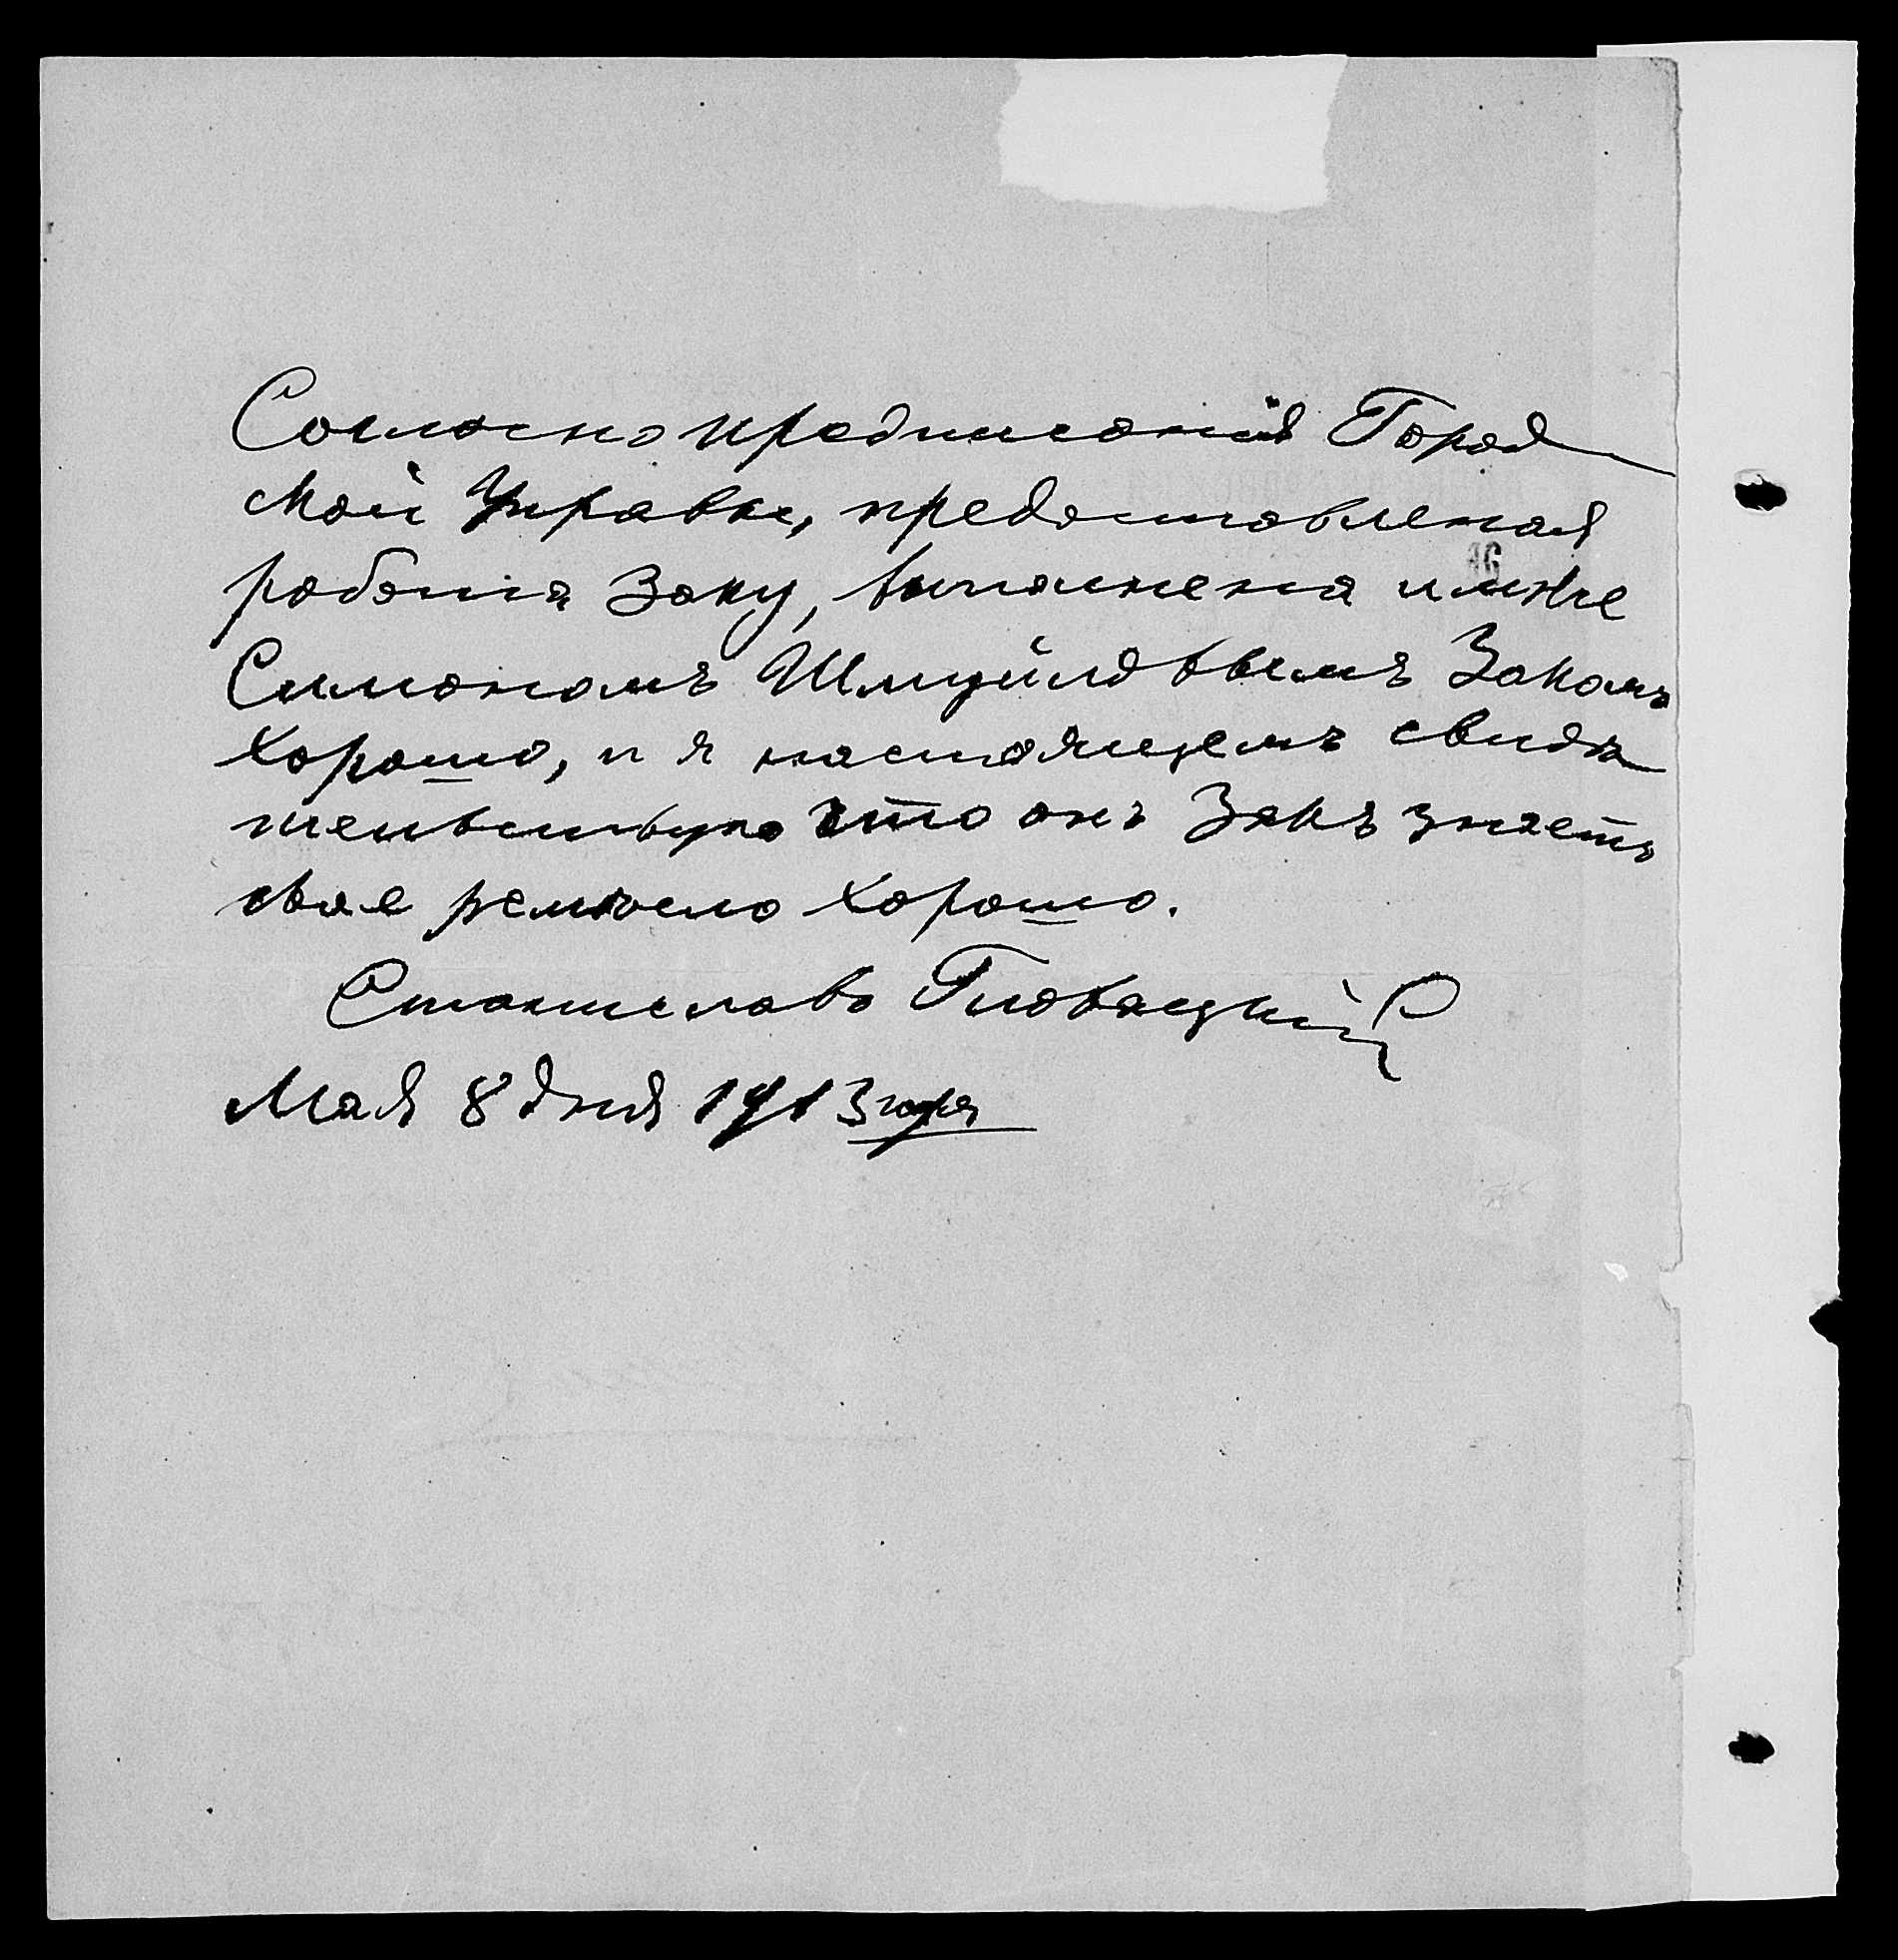 Согласно предписанія Город
ской Управы, предоставленая
работа Заку, выполнена имже
Симономъ Шмуйловымъ Закомъ
хорошо, и я настоящемъ свидѣ
тельствую что онъ Закъ знаетъ
свое ремесло хорошо.
Станиславъ Гловацкій
Мая 8 дня 1913 года